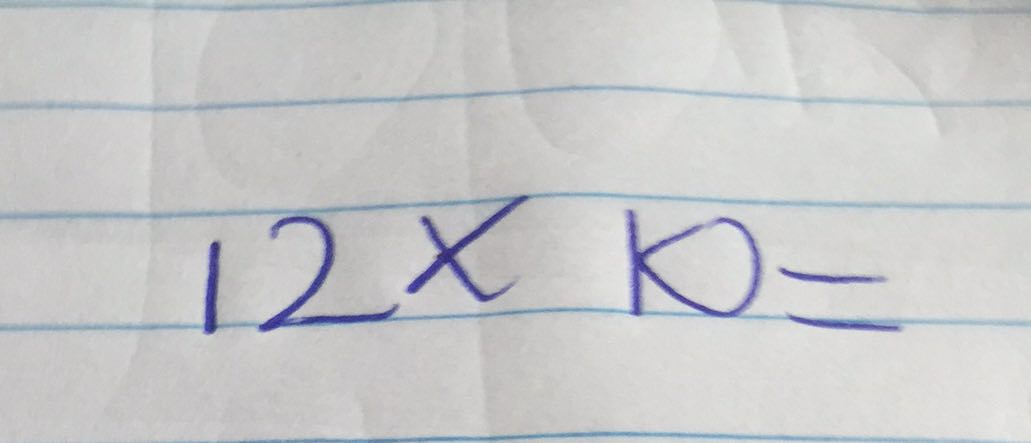 12 × 10 =